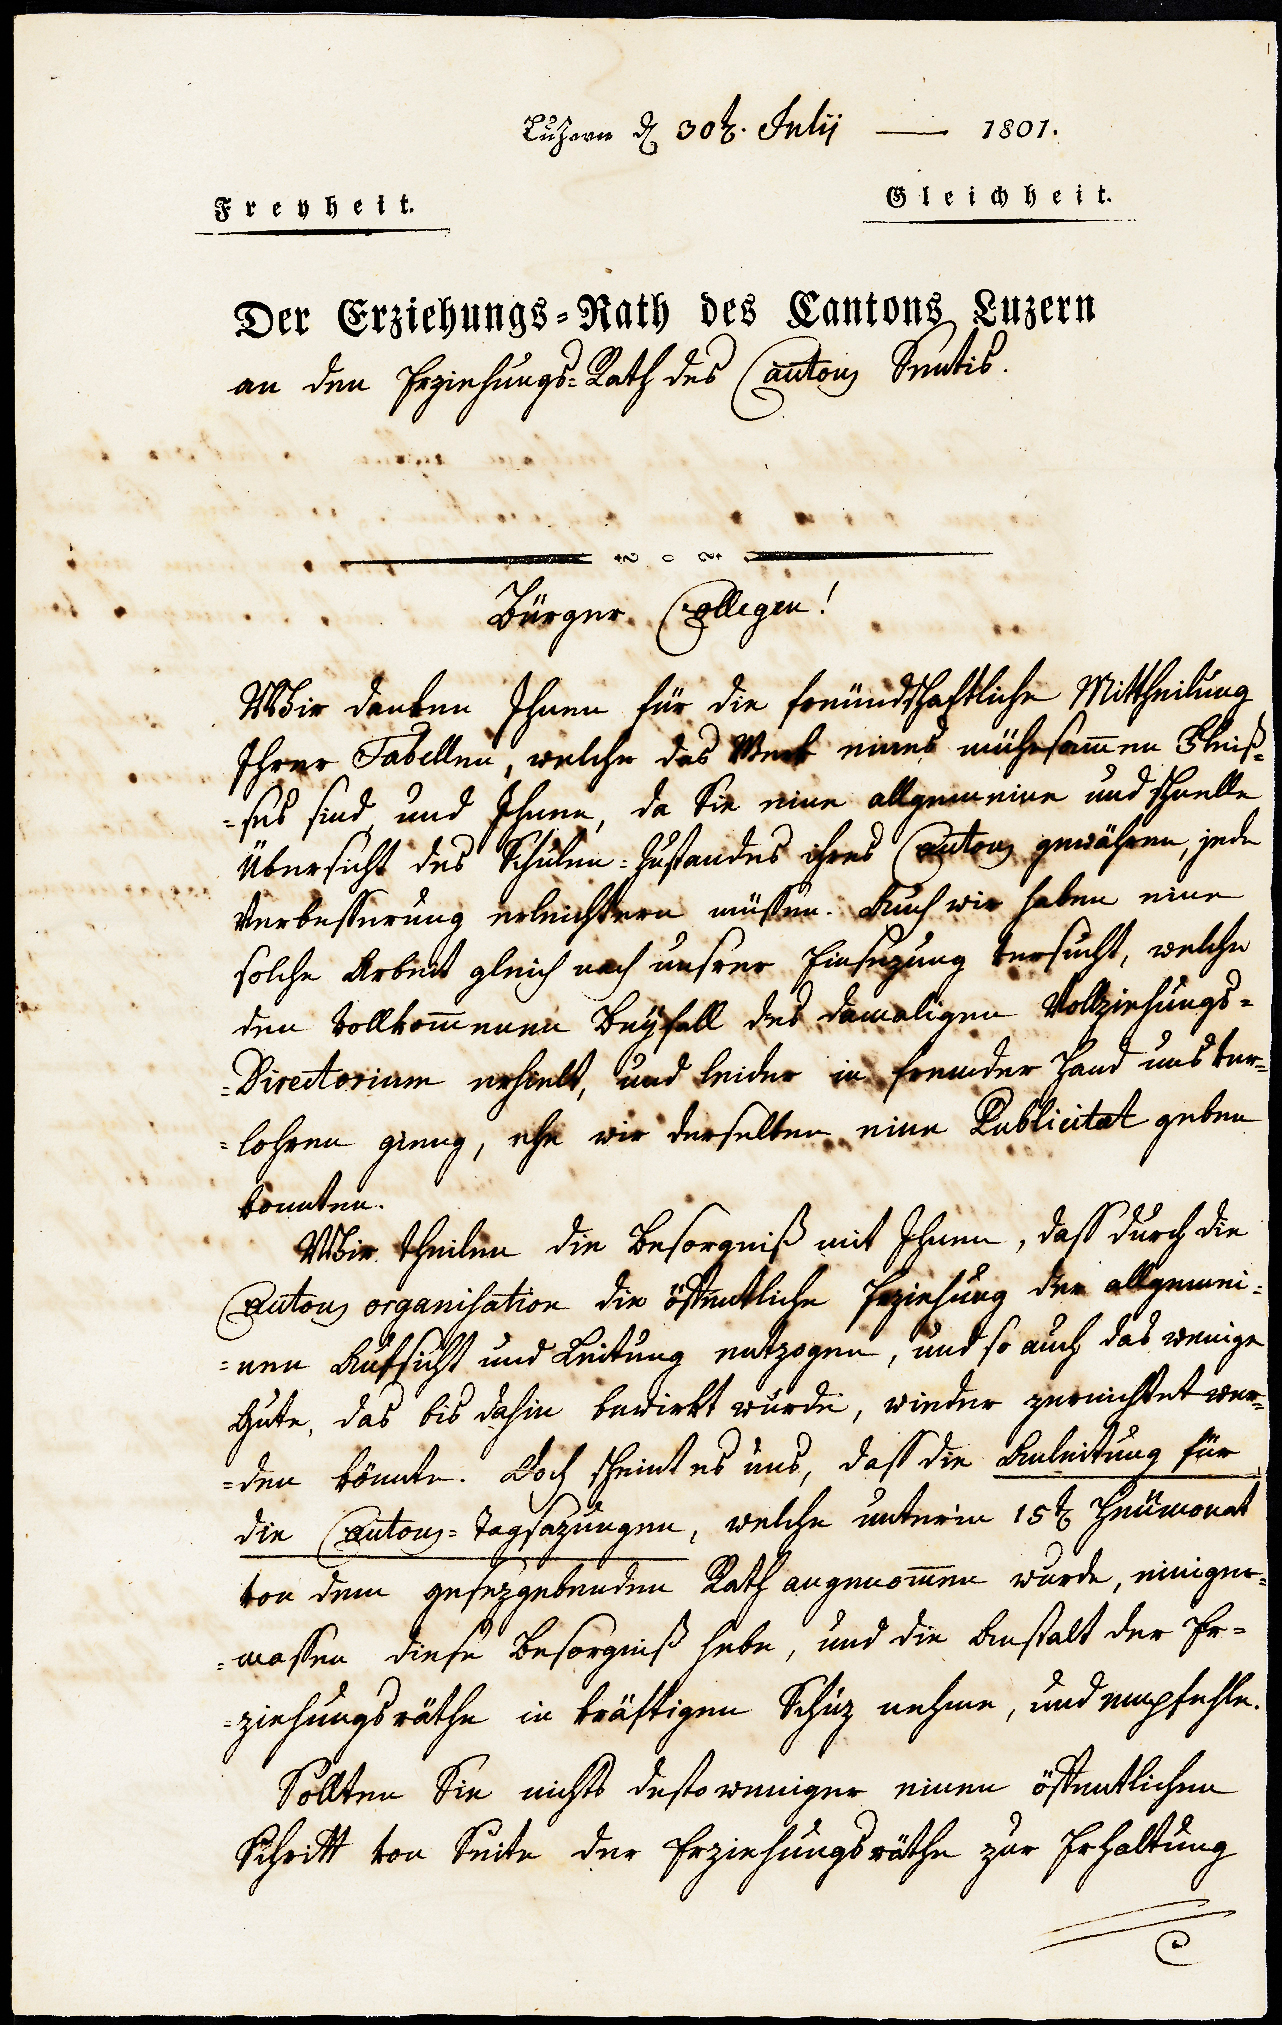 Luzern d 30t. Julij — 1801.
Freyheit.
Gleichheit.
Der Erziehungs=Rath des Cantons Luzern
an den Erziehungs=Rath des Cantons Sentis.
Bürger Collegen!
Wir danken Ihnen für die freündschaftliche Mittheilung
Ihrer Tabellen, welche das Werk eines mühesam̅en Fleis=
=ses sind, und Ihnen, da Sie eine allgemeine und schnelle
Übersicht des Schulen=Zustandes ihres Cantons gewähren, jede
Verbesserung erleichtern müssen. Auch wir haben eine
solche Arbeit gleich nach unsrer Einsezung versucht, welche
den vollkom̅enen Beyfall des damaligen Vollziehungs=
=Directorium erhielt, und leider in fremder Hand uns ver=
=lohren gieng, ehe wir derselben eine Publicitat geben
konnten.
Wir theilen die Besorgniß mit Ihnen, dass durch die
Cantons organisation die öffentliche Erziehung der allgemei=
=nen Aufsicht und Leitung entzogen, und so auch das wenige
Gute, das bis dahin bewirkt wurde, wieder zernichtet wer=
=den könnte. Doch scheint es uns, dass die Anleitung für
die Cantons=Tagsazungen, welche unterm 15t Heümonat
von dem gesezgebenden Rath angenom̅en wurde, einiger=
=massen diese Besorgniß hebe, und die Anstalt der Er=
=ziehungsräthe in kräftigen Schuz nehme, und empfehle.
Sollten Sie nichts destoweniger einen öffentlichen
Schritt von Seite der Erziehungsräthe zur Erhaltung